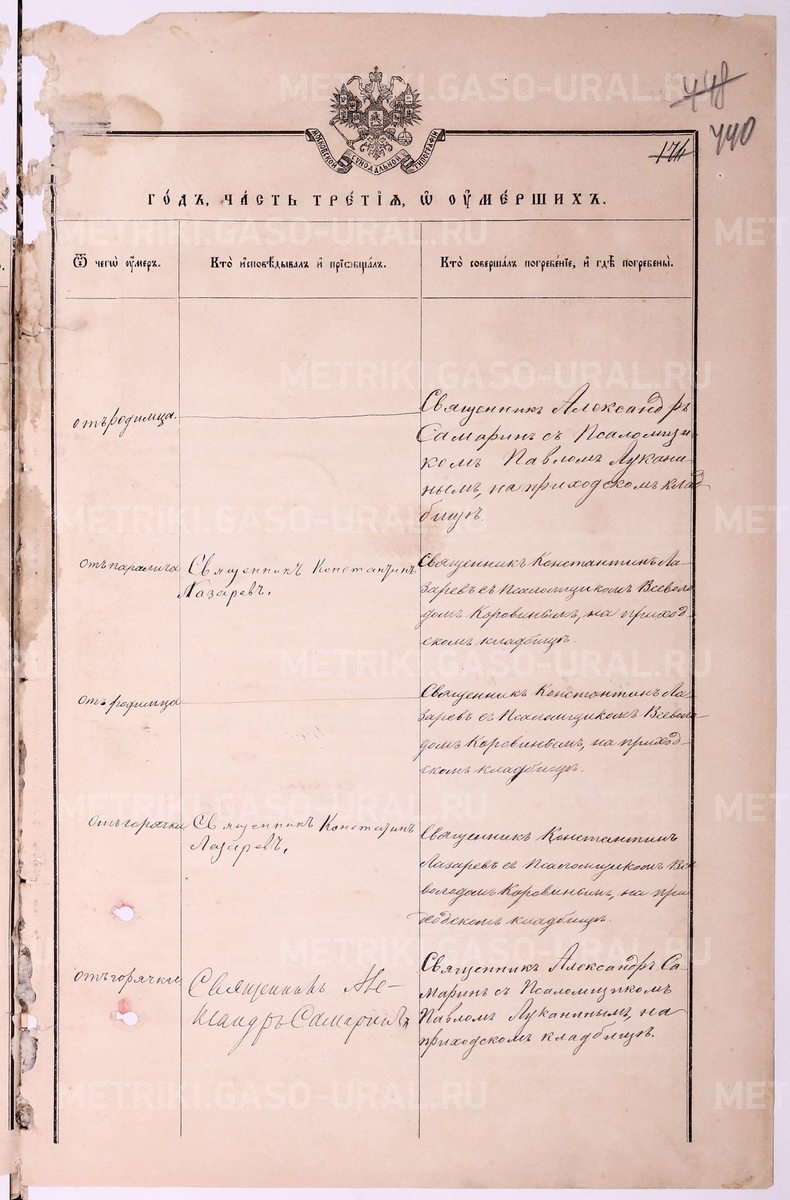 448
440
174
МОСКОВСКОЙ СѴНОДАЛЬНОЙ ТИПОГРАФІИ
ГО́ДЪ, ЧА́СТЬ ТРЕ́ТІѦ, Ѡ ОУ҆МЕ́РШИХЪ.
Ѿ чегѡ̀ оу҆́меръ.
Кто̀ и҆сповѣ́дывалъ и҆ прїѡбща́лъ.
Кто̀ соверша́лъ погребе́нїе, и҆ гдѣ̀ погребены̀.
отъ родимца.
Священникъ Александръ
Самаринъ съ Псаломщи-
комъ Павломъ Лукани-
нымъ, на приходскомъ клад
бищѣ.
отъ паралича
Священникъ Константинъ
Лазаревъ.
Священникъ Константинъ Ла-
заревъ съ Псаломщикомъ Всеволо-
домъ Коровинымъ, на приход-
скомъ кладбищѣ.
отъ родимца
Священникъ Константинъ Ла-
заревъ съ Псаломщикомъ Всеволо-
домъ Коровинымъ, на приход-
скомъ кладбищѣ.
отъ горячки
Священникъ Констатинъ
Лазаревъ.
Священникъ Константинъ
Лазаревъ съ Псаломщикомъ Все
володомъ Коровинымъ, на при
ходскомъ кладбищѣ.
отъ горячки
Священникъ Але-
ксандръ Самаринъ
Священникъ Александръ Са-
маринъ съ Псаломщикомъ
Павломъ Луканинымъ, на
приходскомъ кладбищѣ.
METRIKI.GASO-URAL.RU